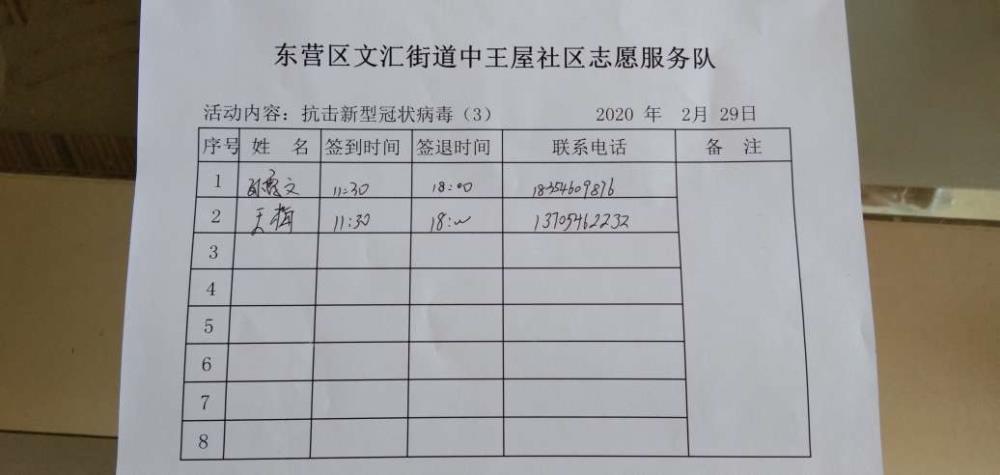 东营区文汇街道中王屋社区志愿服务队
活动内容：抗击新型冠状病毒（3） 2020 年 2月 29日
序号 姓 名 签到时间 签退时间 联系电话 备 注
1 文 11:30 18:00 18354609876
2 王梅 11:30 18:00 13705462232
3
4
5
6
7
8